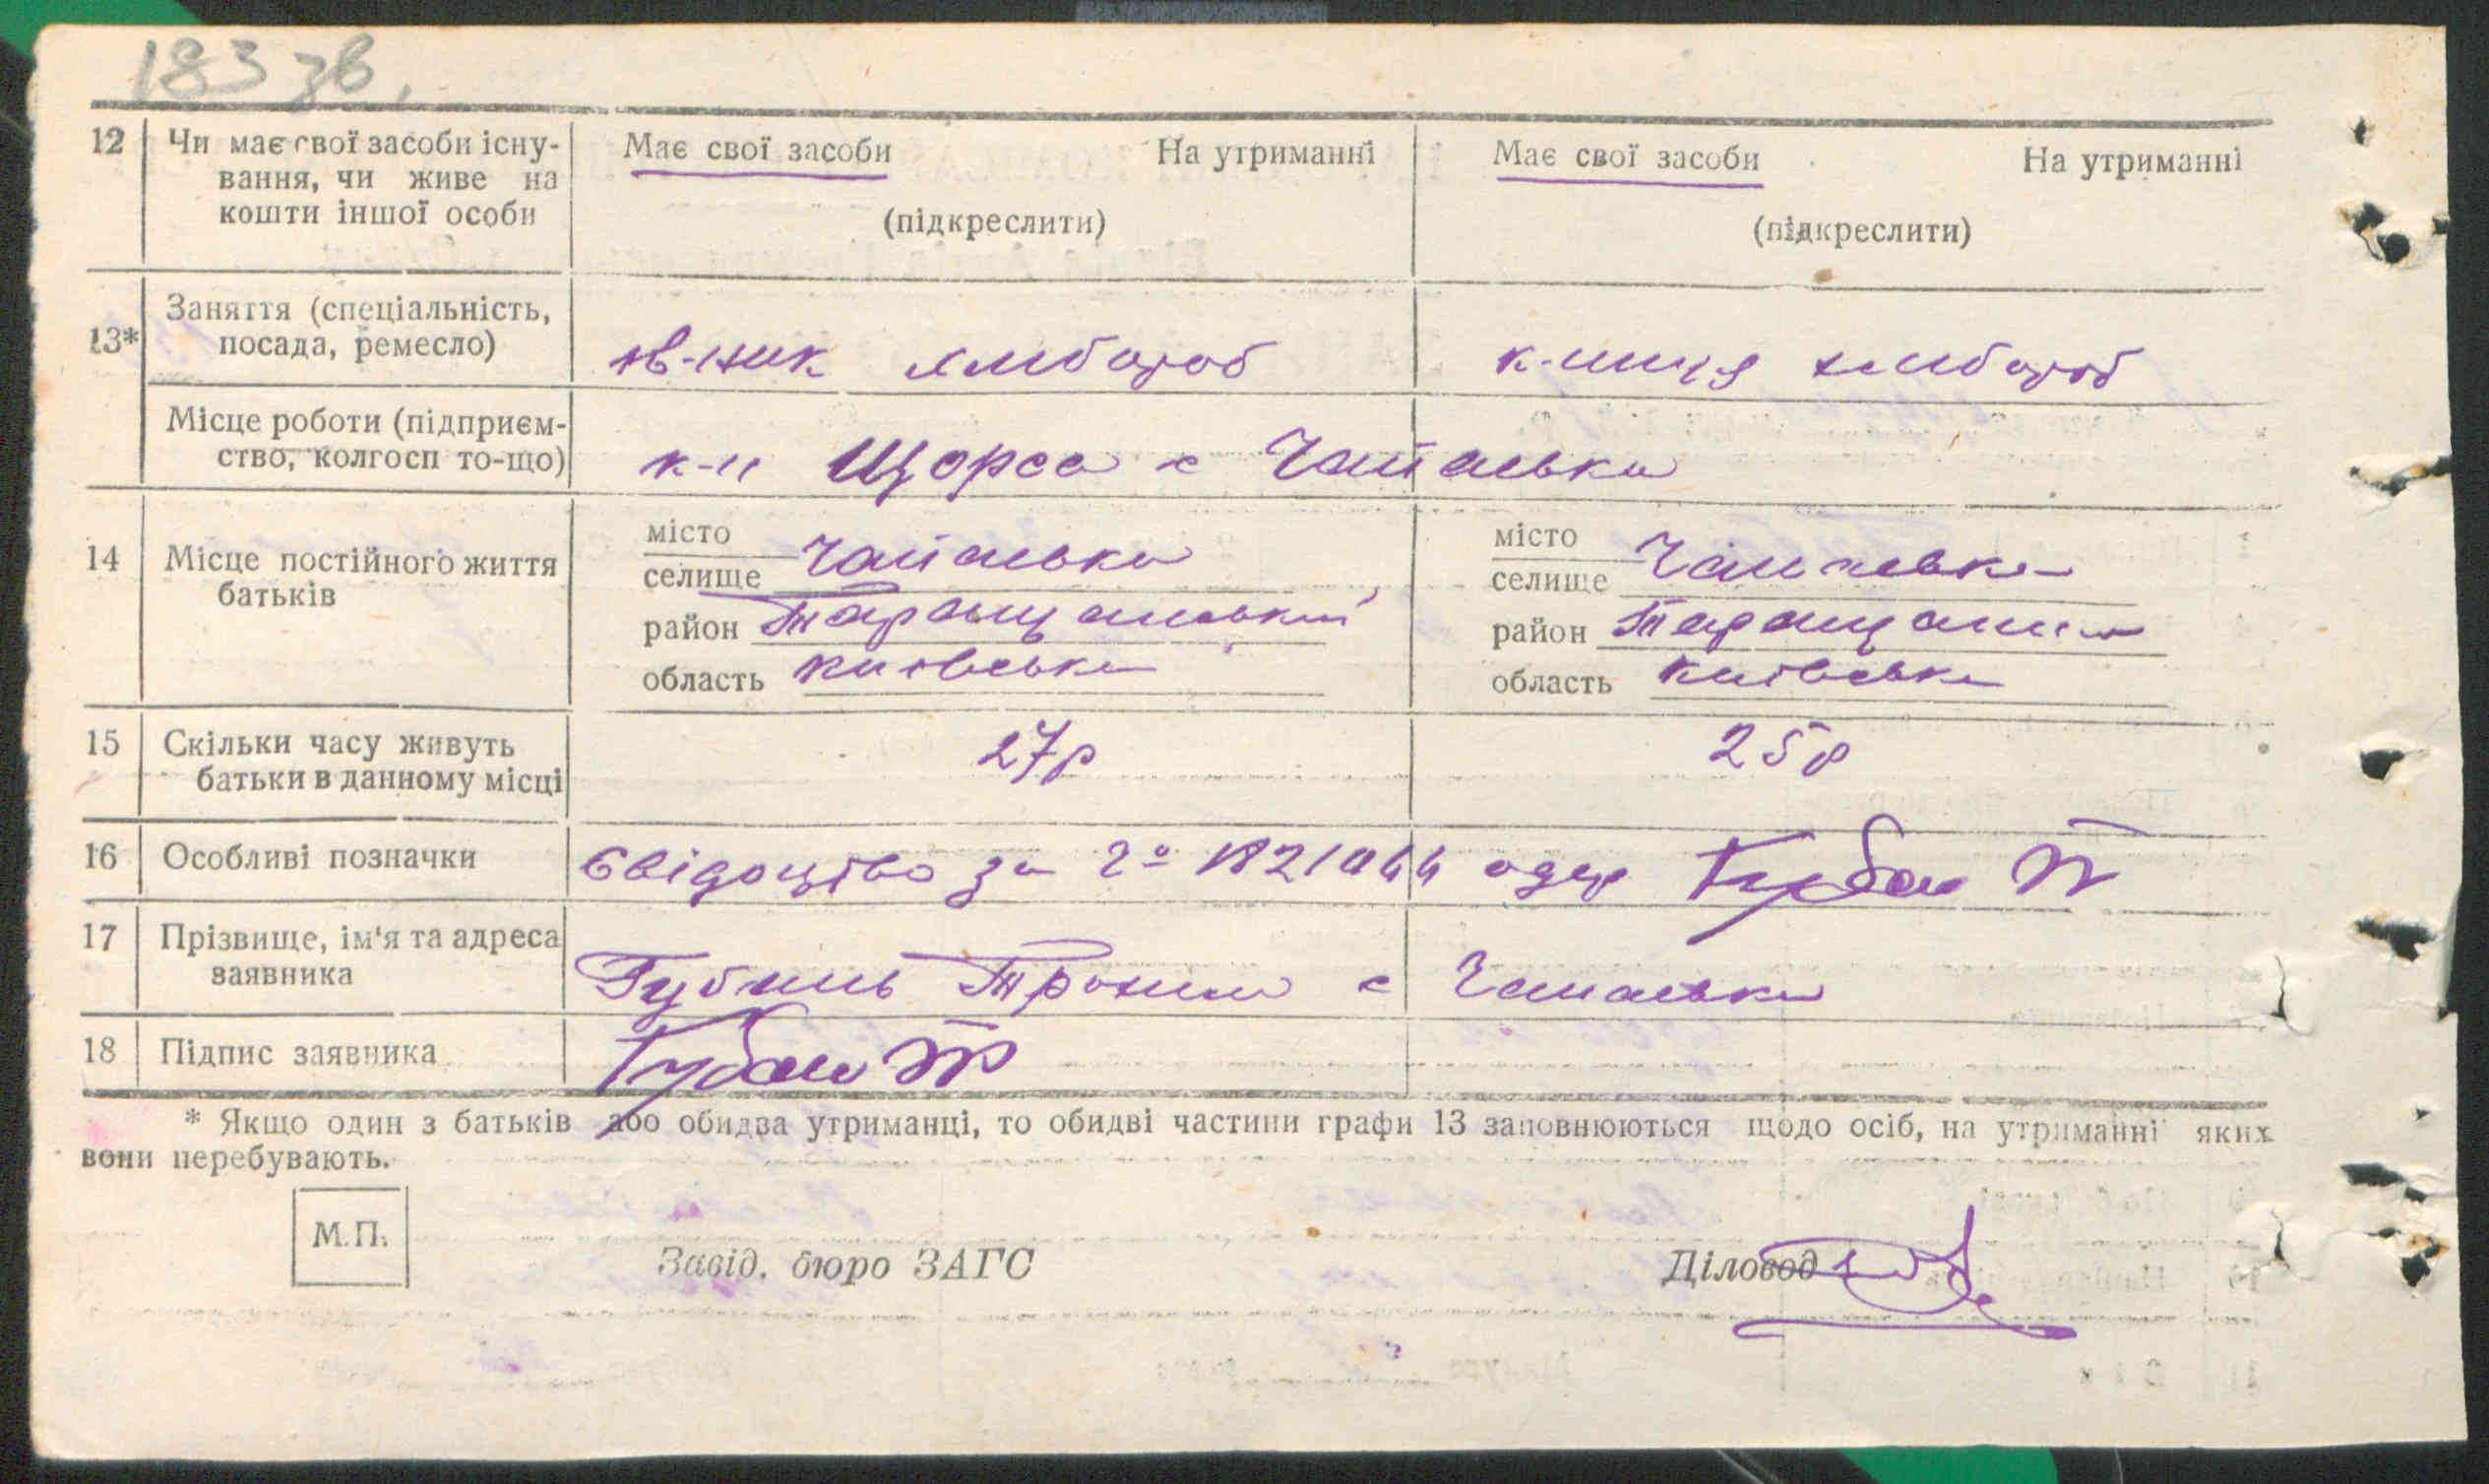 183 зв.
12 Чи має свої засоби існу-
вання, чи живе на
кошти іншої особи
Має свої засоби На утриманні
(підкреслити)
Має свої засоби На утриманні
(підкреслити)
13* Заняття (спеціальність,
посада, ремесло)
хлібороб
хлібороб
Місце роботи (підприєм-
ство, колгосп то-що)
к-п Щорса с Чапаєвка
14 Місце постійного життя
батьків
місто
селище Чапаєвка
район Таращанський
область Київська
місто
селище Чапаєвка
район
область Київська
15 Скільки часу живуть
батьки в данному місці
27р 25р
16 Особливі позначки
Свідоцтво за одер
17 Прізвище, ім'я та адреса
заявника
Трохим с Чапаєвка
18 Підпис заявника
* Якщо один з батьків або обидва утриманці, то обидві частини графи 13 заповнюються щодо осіб, на утриманні яких
вони перебувають.
М.П.
Завід. бюро ЗАГС
Діловод